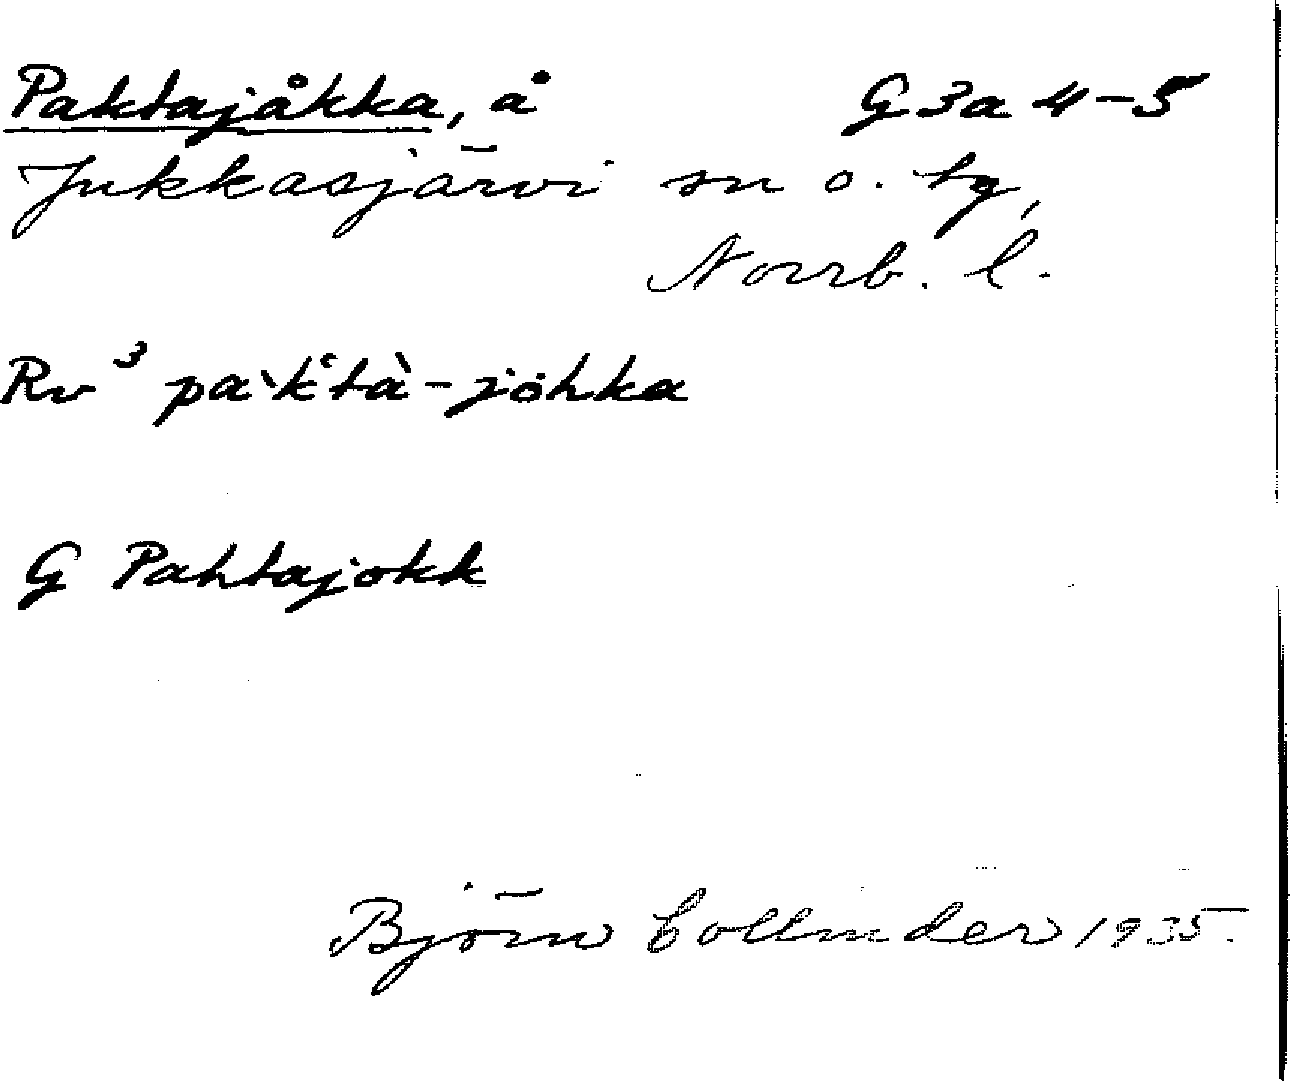 Paktajåkka, å G 3a 4-5
Jukkasjärvi sn o. tg,
Norrb. l.
Rv³ pa`k͑tà-jòhka
G Pahtajokk
Björn Collinder 1935.